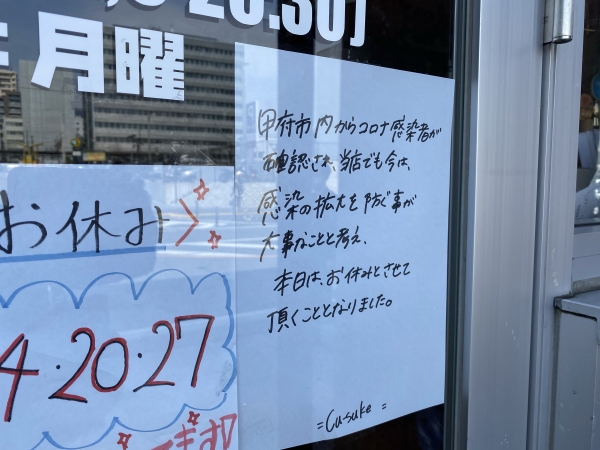 20:30]
月曜
甲府市内からコロナ感染者が
確認され、当店でも今は、
感染の拡大を防ぐ事が
大事なことと考え、
本日は、お休みとさせて
頂くこととなりました。
=Cu-suke=
お休み
4・20・27
ます